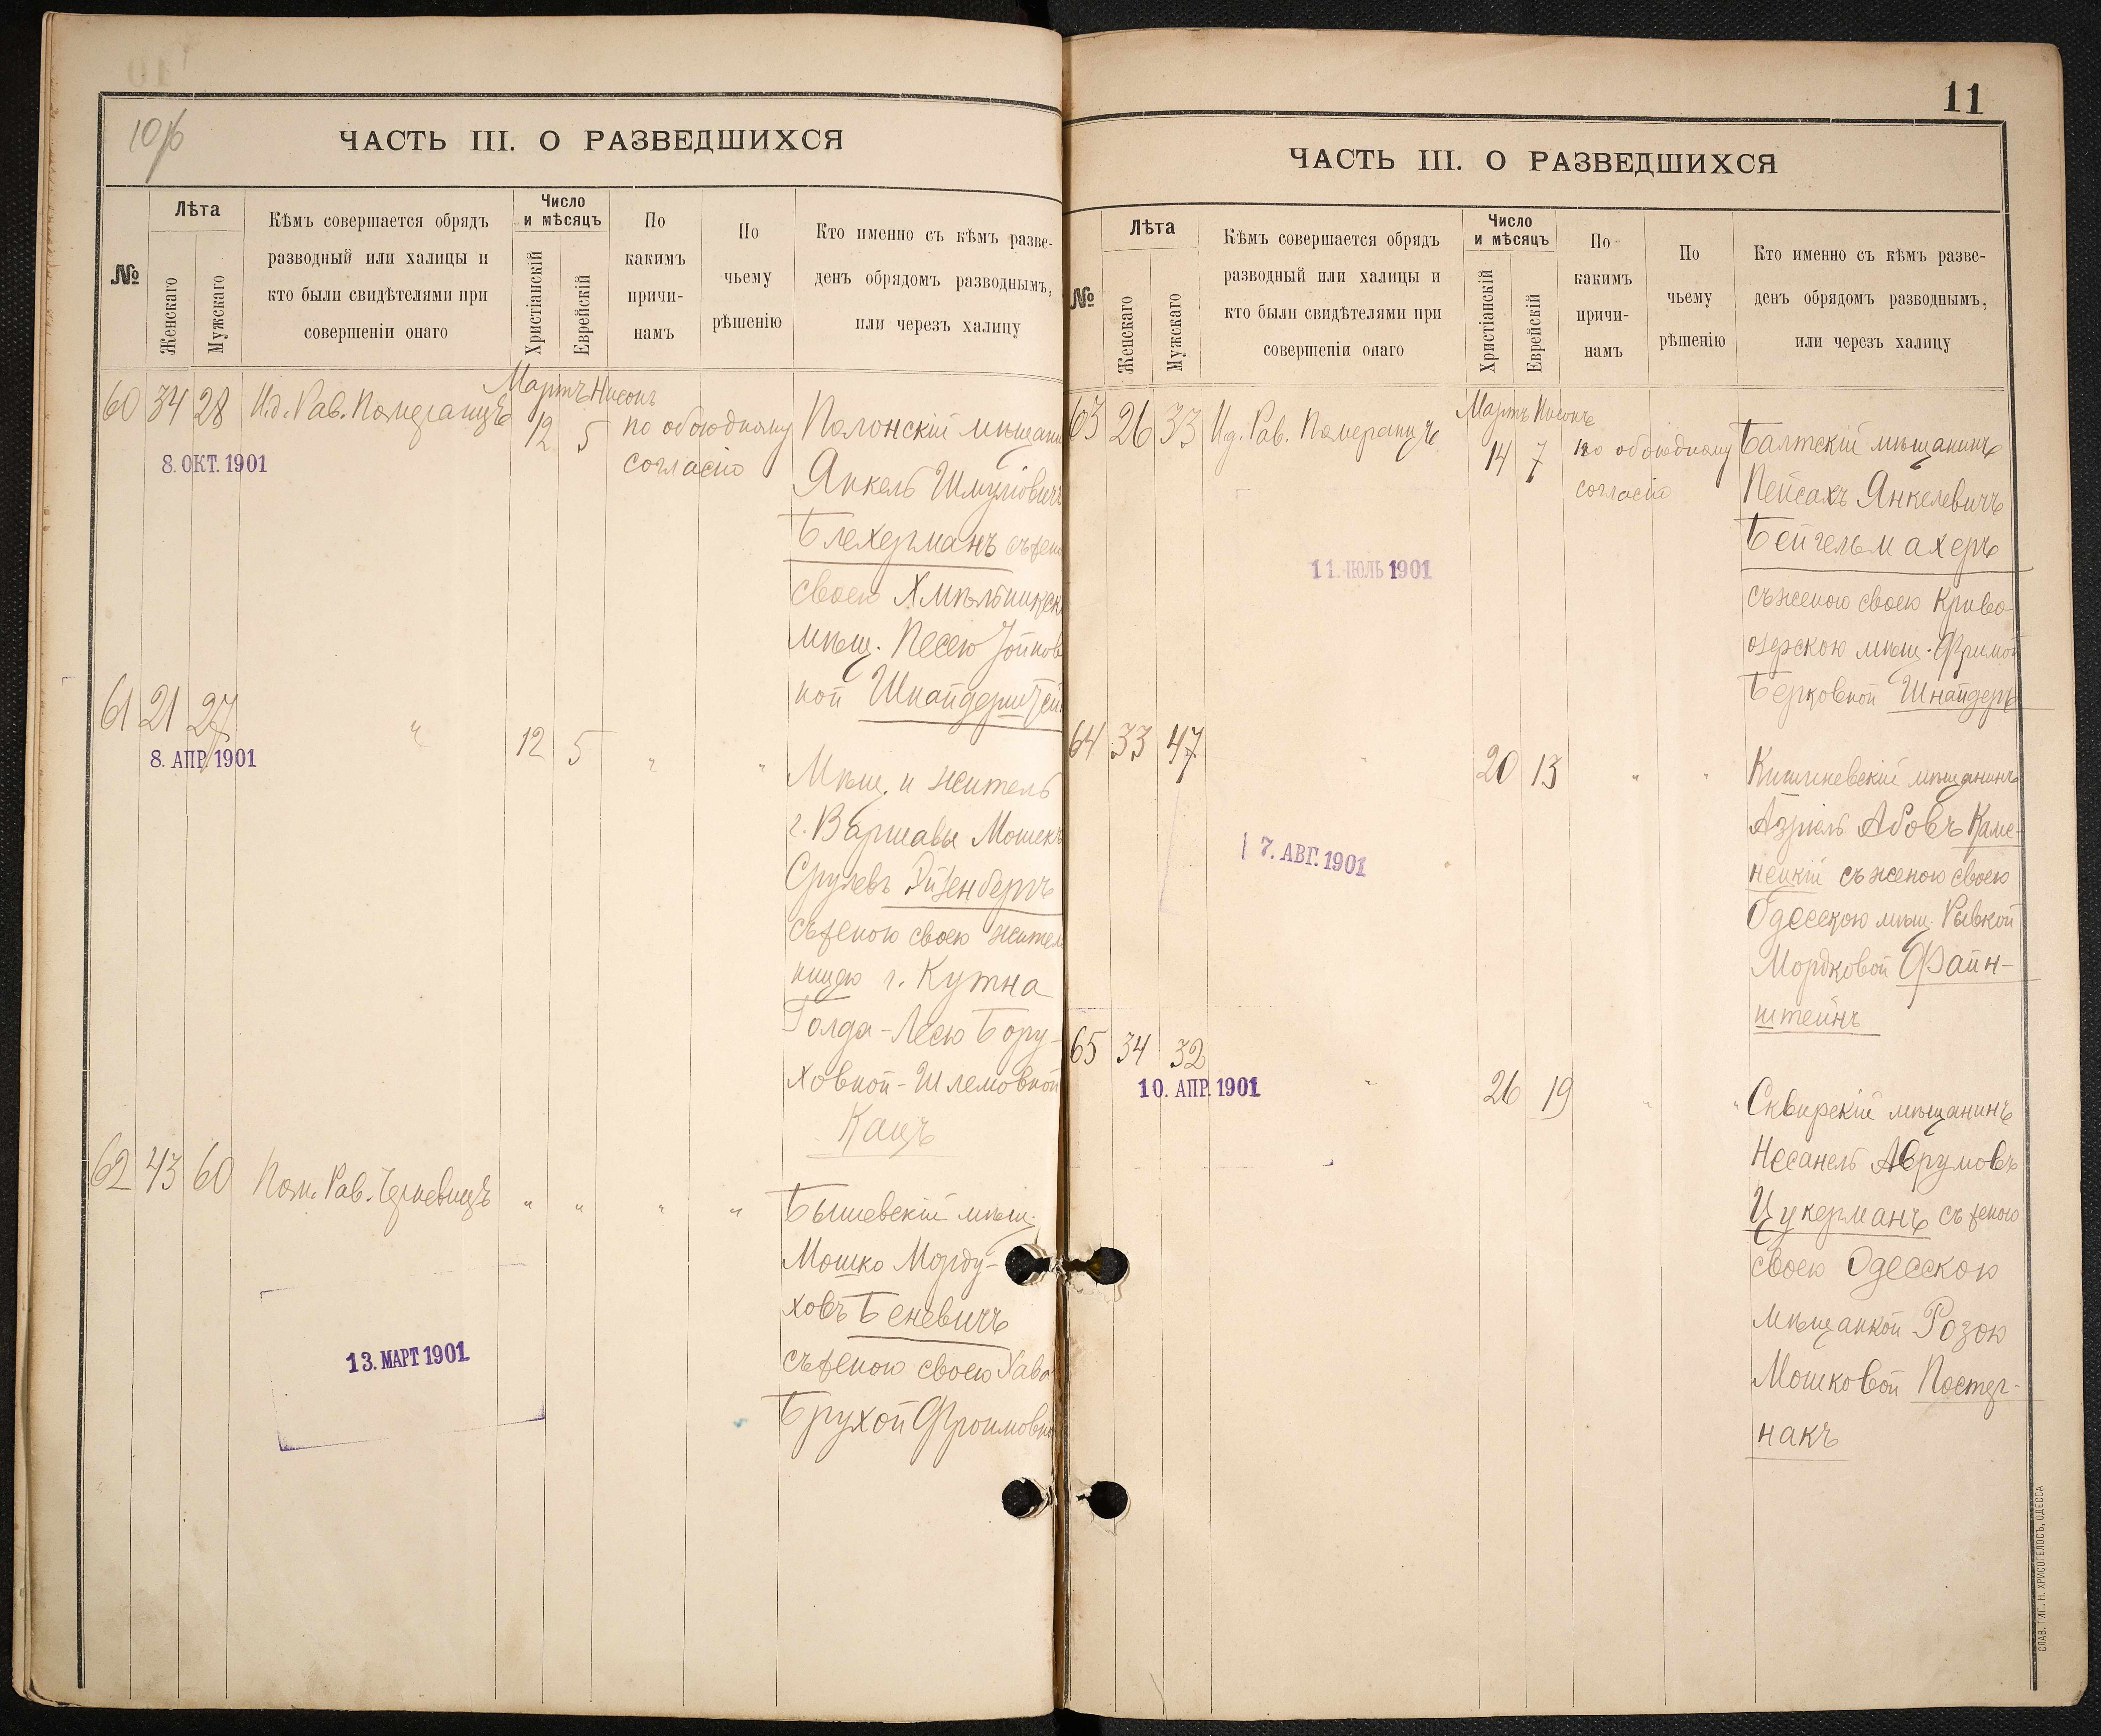 10/б
ЧАСТЬ III. О РАЗВЕДШИХСЯ
№
Лѣта
Женскаго
Мужскаго
Кѣмъ совершается обрядъ
разводный или халицы и
кто были свидѣтелями при
совершеніи онаго
Число
и мѣсяцъ
Христіанскій
Еврейскій
По
какимъ
причи-
намъ
По
чьему
рѣшенію
Кто именно съ кѣмъ разве-
денъ обрядомъ разводнымъ,
или черезъ халицу
Мартъ Нисонъ
60 34 28 И.д. Рав. Померанцъ 12 5 по обоюдному
согласію
8. ОКТ. 1901
Полонскій мѣщани
Янкель Шмуліовичъ
Блехерманъ съ жен
своею Хмѣльникск
мѣщ. Песею Іойнов
ной Шнайдерштей
61 21 27 " 12 5 " "
8. АПР. 1901
Мѣщ. и житель
г. Варшавы Мошекъ
Срулевъ Эйзенбергъ
съ женою своею жител
ницею г. Кутна
Голда-Лесею Бору-
ховной-Шлемовной
Кацъ
62 43 60 Пом. Рав. Черневицъ " " " "
13. МАРТ 1901
Бышевскій мѣщ.
Мошко Морду-
ховъ Беневичъ
съ женою своею Хава
Брухой Фроимовн
11
ЧАСТЬ III. О РАЗВЕДШИХСЯ
№
Лѣта
Женскаго
Мужскаго
Кѣмъ совершается обрядъ
разводный или халицы и
кто были свидѣтелями при
совершеніи онаго
Число
и мѣсяцъ
Христіанскій
Еврейскій
По
какимъ
причи-
намъ
По
чьему
рѣшенію
Кто именно съ кѣмъ разве-
денъ обрядомъ разводнымъ,
или черезъ халицу
Мартъ Нисонъ
63 26 33 И.д. Рав. Померанцъ 14 7 по обоюдному
согласію
11. ІЮЛЬ 1901
Балтскій мѣщанинъ
Пейсахъ Янкелевичъ
Бейгельмахеръ
съ женою своею Криво-
озерскою мѣщ. Фримой
Берковной Шнайдеръ
64 33 47 " 20 13 " "
7. АВГ. 1901
Кишиневскій мѣщанинъ
Азріель Абовъ Каме-
нецкій съ женою своею
Одесскою мѣщ. Рывкой
Мордковой Файн-
штейнъ
65 34 32 " 26 19 " "
10. АПР. 1901
Сквирскій мѣщанинъ
Несанель Аврумовъ
Цукерманъ съ женою
своею Одесскою
мѣщанкой Розою
Мошковой Постер-
накъ
СЛАВ. ТИП. Н. ХРИСОГЕЛОСЪ, ОДЕССА